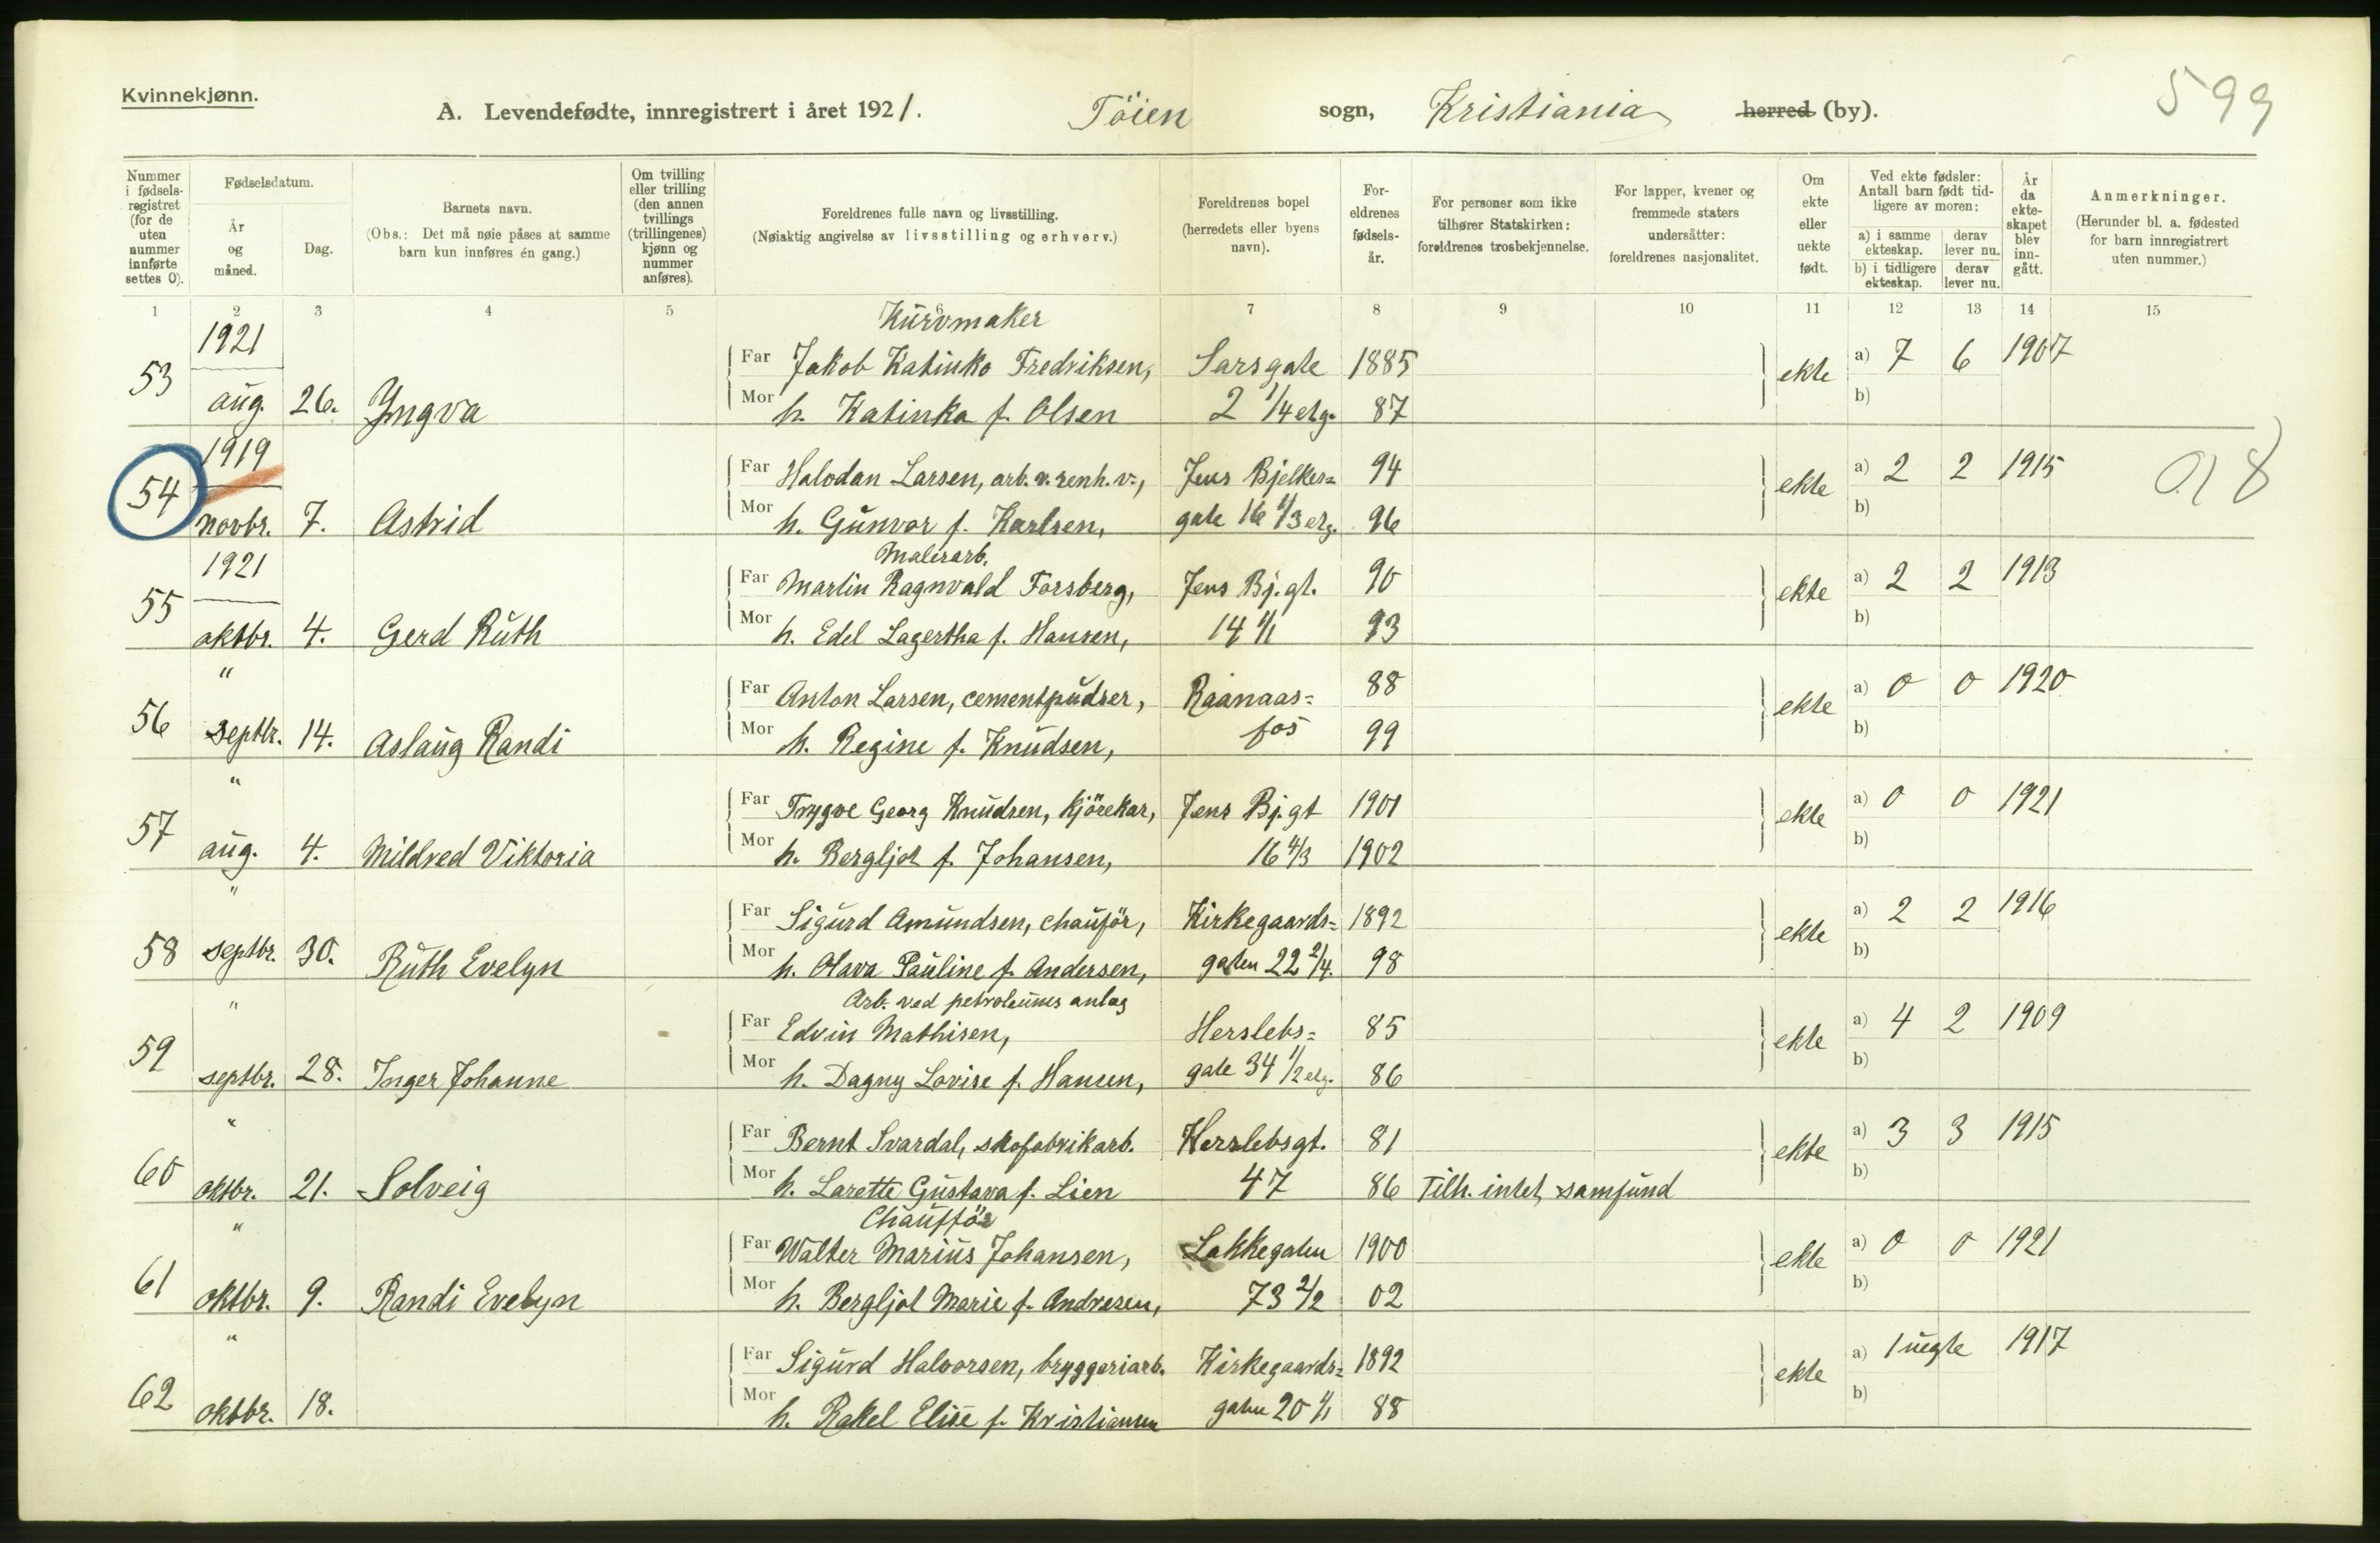 Kvinnekjønn.
599
A. Levendefødte, innregistrert i året 1921. Töien sogn, Kristiania herred (by).
Nummer i fødsels-registret (for de uten nummer innførte settes 0).
Fødselsdatum.
År og måned.
Dag.
Barnets navn.
(Obs.: Det må nøie påses at samme barn kun innføres én gang.)
Om tvilling eller trilling (den annen tvillings (trillingenes) kjønn og nummer anføres).
Foreldrenes fulle navn og livsstilling.
(Nøiaktig angivelse av livsstilling og erhverv.)
Foreldrenes bopel (herredets eller byens navn).
For-eldrenes fødsels-år.
For personer som ikke tilhører Statskirken: foreldrenes trosbekjennelse.
For lapper, kvener og fremmede staters undersåtter: foreldrenes nasjonalitet.
Om ekte eller uekte født.
Ved ekte fødsler: Antall barn født tid-ligere av moren:
a) i samme ekteskap. derav lever nu.
b) i tidligere ekteskap. derav lever nu.
År da ekte-skapet blev inn-gått.
Anmerkninger.
(Herunder bl. a. fødested for barn innregistrert uten nummer.)
1 2 3 4 5 6 7 8 9 10 11 12 13 14 15
1921 Kurvmaker
53 Far Jakob Katinko Fredriksen, Sarsgate 1885 ekte a) 7 6 1907
aug. 26. Yngva Mor h. Katinka f. Olsen 2 1/4 etg. 87 b)
1919
54 Far Halvdan Larsen, arb. v. renh.v., Jens Bjelkes= 94 ekte a) 2 2 1915 018
novbr. 7. Astrid Mor h. Gunvor f. Karlsen, gate 16 1/3 etg. 96 b)
1921 Malerarb.
55 Far Martin Ragnvald Forsberg, Jens Bj. gt. 90 ekte a) 2 2 1913
oktbr. 4. Gerd Ruth Mor h. Edel Lagertha f. Hansen, 14 1/1 93 b)
"
56 Far Anton Larsen, cementpudser, Raanaas= 88 ekte a) 0 0 1920
septbr. 14. Aslaug Randi Mor h. Regine f. Knudsen, fos 99 b)
"
57 Far Trygve Georg Knudsen, kjörekar, Jens Bj. gt 1901 ekte a) 0 0 1921
aug. 4. Mildred Viktoria Mor h. Bergljot f. Johansen, 16 4/3 1902 b)
"
58 Far Sigurd Amundsen, chauför, Kirkegaards= 1892 ekte a) 2 2 1916
septbr. 30. Ruth Evelyn Mor h. Olava Pauline f. Andersen, gaten 22 2/4. 98 b)
" Arb. ved petroleums anlag
59 Far Edvin Mathisen, Herslebs= 85 ekte a) 4 2 1909
septbr. 28. Inger Johanne Mor h. Dagny Lovise f. Hansen, gate 34 1/2 etg. 86 b)
"
60 Far Bernt Svardal, skofabrikarb. Herslebsgt. 81 ekte a) 3 3 1915
oktbr. 21. Solveig Mor h. Larette Gustava f. Lien 47 86 Tilh. intet samfund b)
" Chaufför
61 Far Walter Marius Johansen, Lakkegaten 1900 ekte a) 0 0 1921
oktbr. 9. Randi Evelyn Mor h. Bergljot Marie f. Andresen, 73 2/2 02 b)
"
62 Far Sigurd Halvorsen, bryggeriarb. Kirkegaards= 1892 ekte a) 1 uegte 1917
oktbr. 18. Mor h. Rakel Elise f. Kristiansen gaten 20 1/1 88 b)